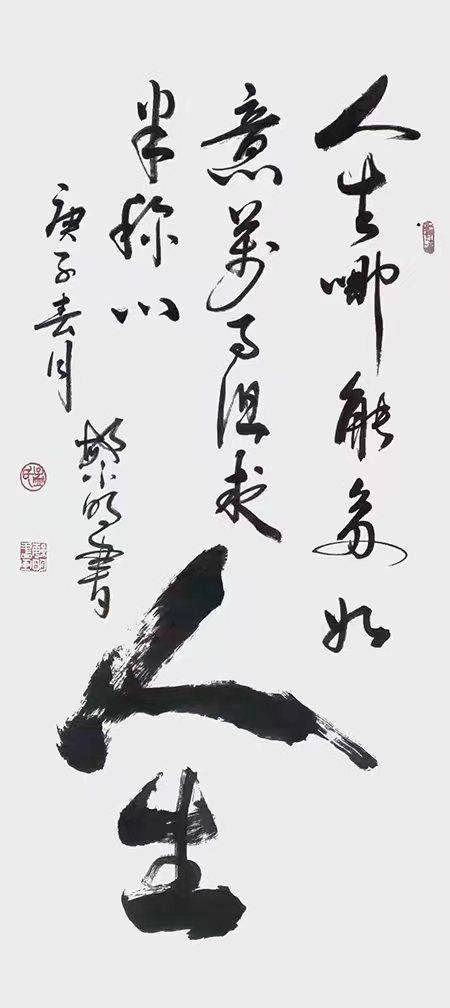 人生哪能多如
意萬事但求
半称心
庚子春月
黎明書
人生